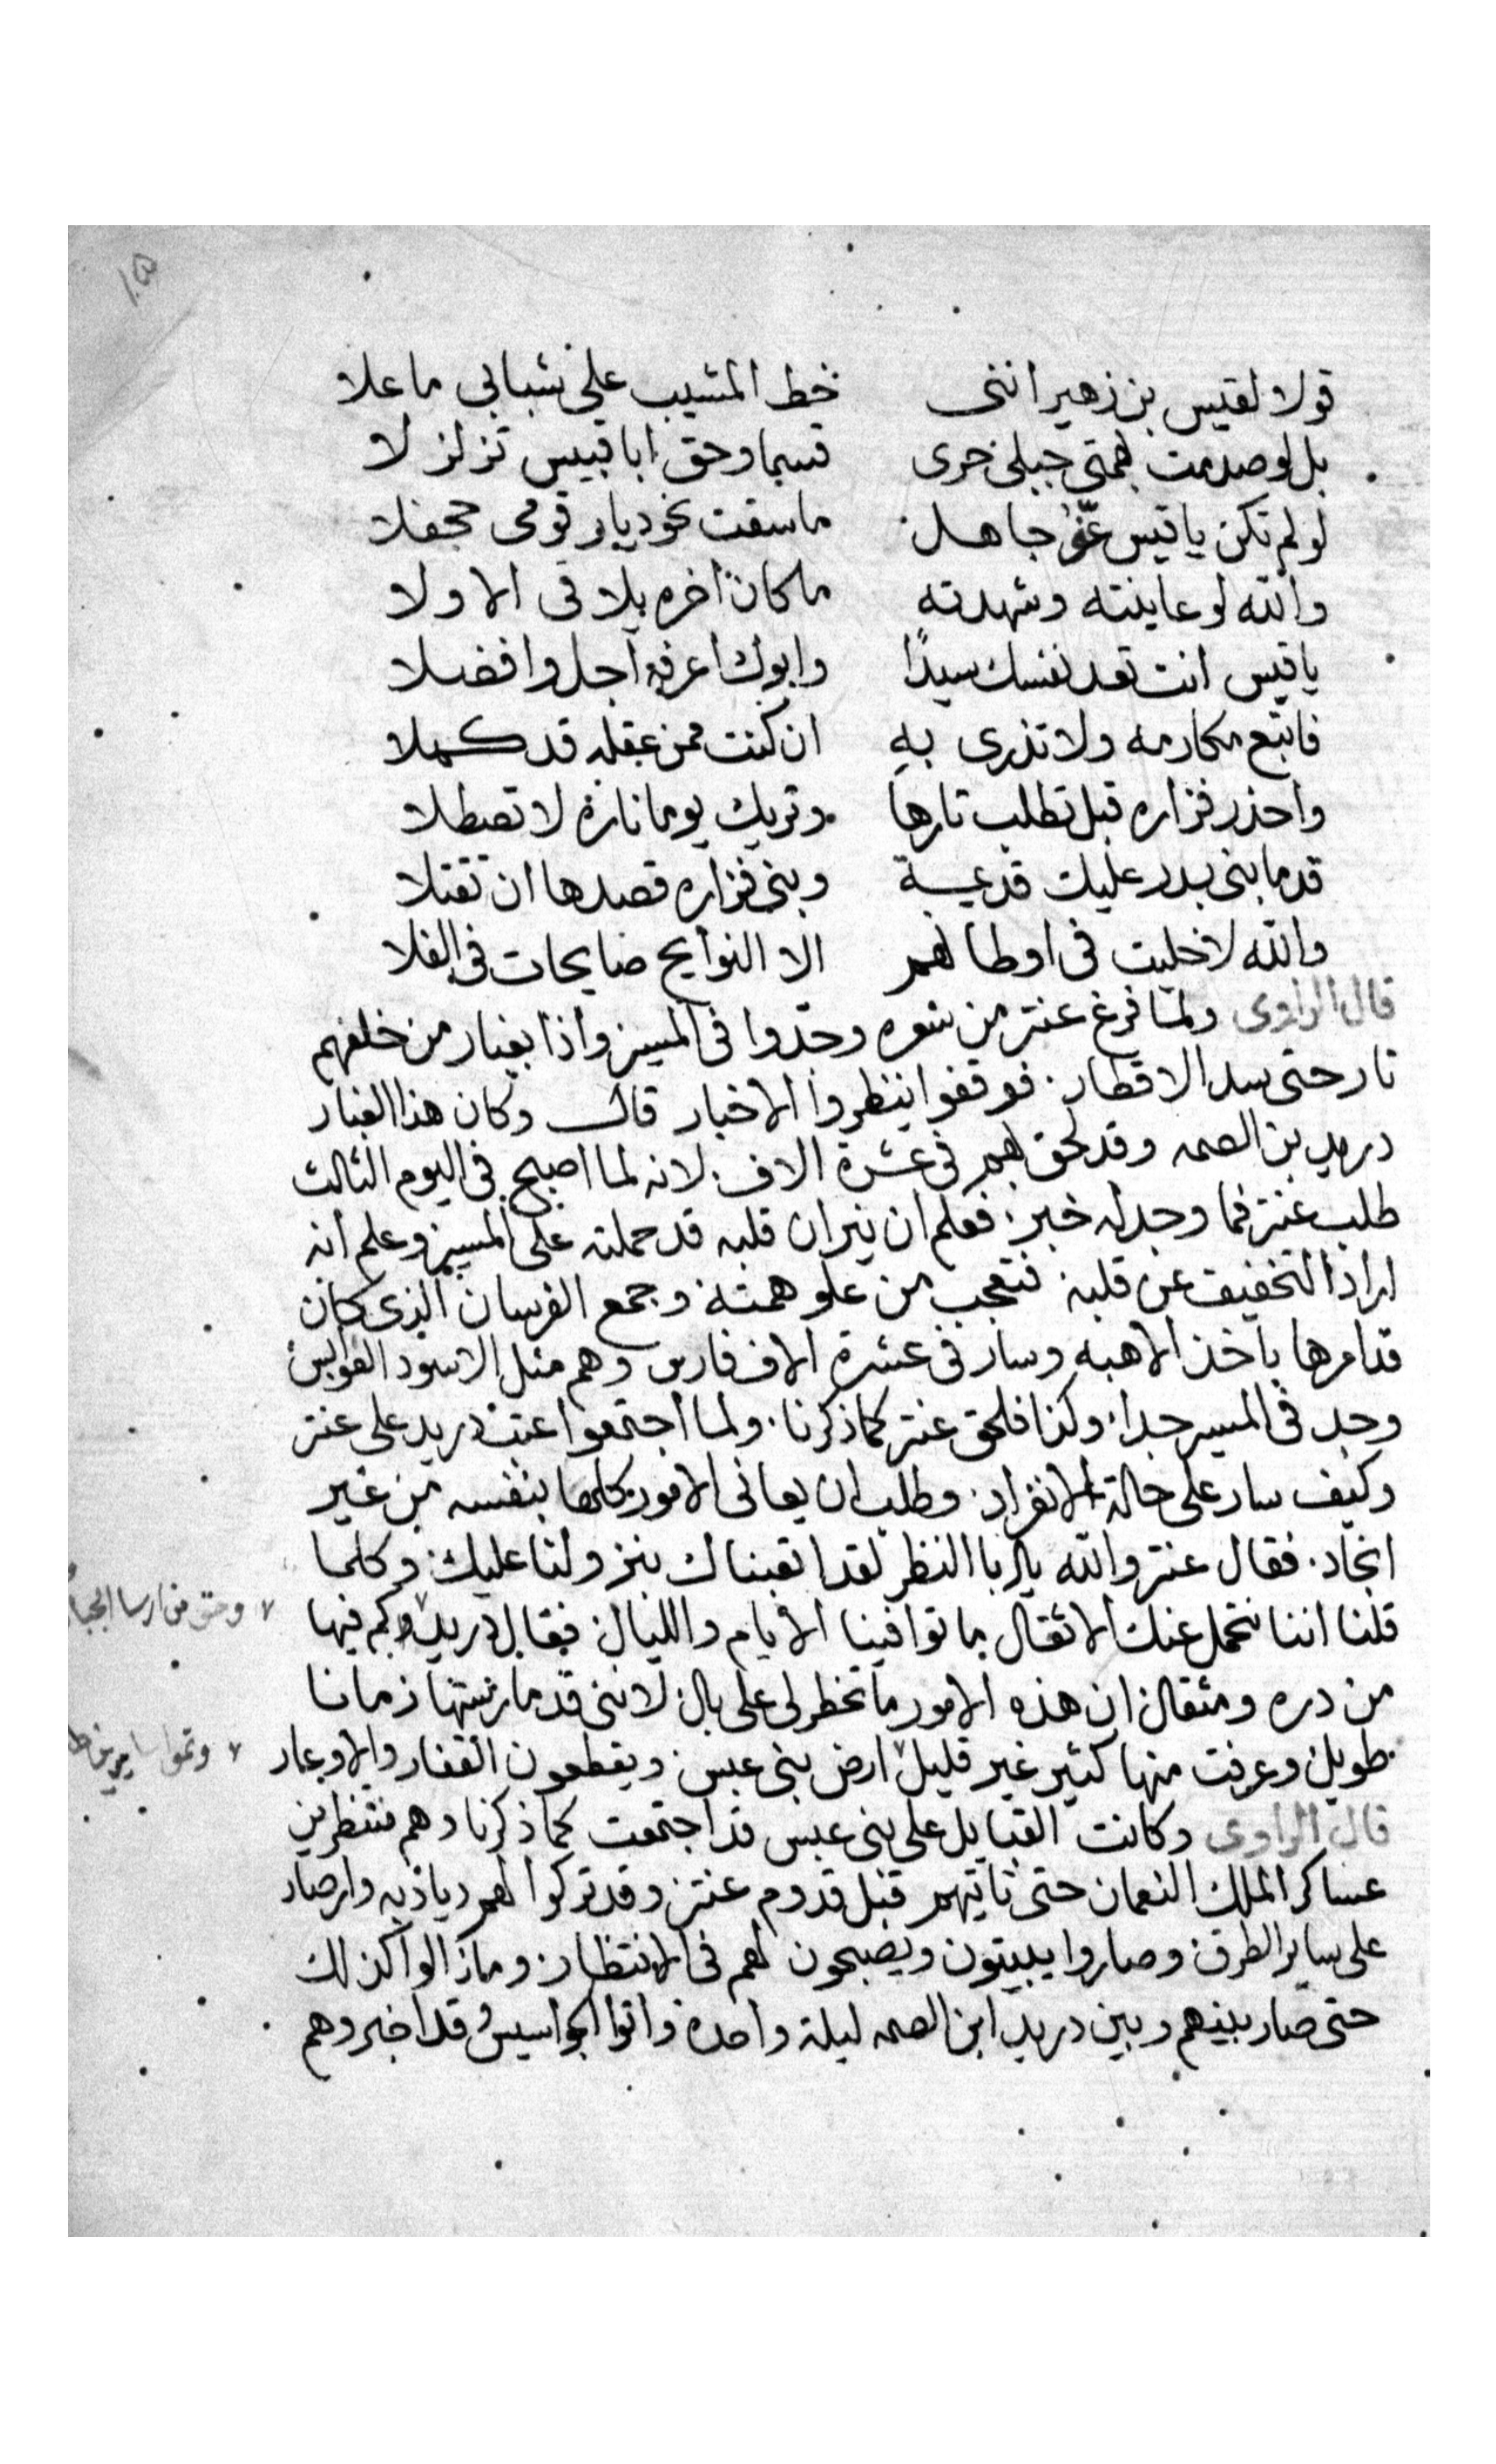 ١٥
قولا لقيس بن زهير انني خط المشيب على شبابي ما علا
بل لو صدمت بهمتي جبلي حرى قسما وحق ابا قبيس تزلزلا
لو لم تكن يا قيس غر جاهل ما سقت نحو ديار قومي جحفلا
والله لو عاينته وشهدته ما كان اخره يلاقي الاولا
يا قيس انت تعد نفسك سيدًا وابوك اعرفه اجل وافضلا
فاتبع مكارمه ولا تذري به ان كنت ممن عقله قد كملا
واحذر فزاره قبل تطلب تارها وتريك يوما ناره لا تصطلا
قدما بني بدر عليك قديمة وبني فزاره قصدها ان تقتلا
والله لا خليت في اوطانهم الا النوايح صايحات في الفلا
قال الراوى ولما فرغ عنتر من شعره وجدّوا في المسير واذا بغبار من خلفهم
تار حتى سد الاقطار. فوقفوا ينظروا الاخبار قال وكان هذا الغبار
دريد بن الصمه وقد لحق بهم في عشرة الاف. لانه لما اصبح في اليوم الثالث
طلب عنتر فما وجد له خبر. فعلم ان نيران قلبه قد حملته على المسير وعلم انه
اراد التخفيف عن قلبه فتعجب من علو همته وجمع الفرسان الذي كان
قد امرها باخذ الاهبه وسار في عشرة الاف فارس وهم مثل الاسود العوابس
وجد في المسير جدا. وكذا فلحق عنتر كما ذكرنا. ولما اجتمعوا عتب دريد على عنتر
وكيف سار على حالة الانفراد. وطلب ان يعاني الامور كلها بنفسه من غير
انجاد. فقال عنتر والله يا ابا النظر لقد اتعبناك بنزولنا عليك. وكلما
قلنا اننا نتحمل عنك الاثقال ما توافينا الايام والليال فقال دريد وكم فيها
وحق من ارسا الجبا
من دره ومثقال ان هذه الامور ما تخطر لي على بال لانني قد مارستها زمانا
طويل وعرفت منها كثير غير قليل ارض بني عبس ويقطعون القفار والاوعار
وتموا سايرين
قال الراوى وكانت القبايل على بني عبس قد اجتمعت كما ذكرنا وهم منتظرين
عساكر الملك النعمان حتى تاتيهم قبل قدوم عنتر وقد تركوا لهم ديادبه وارصاد
على ساير الطرق وصاروا يبيتون ويصبحون لهم في الانتظار وما زالوا كذلك
حتى صار بينهم وبين دريد ابن الصمه ليلة واحده واتوا الجواسيس وقد اخبروهم